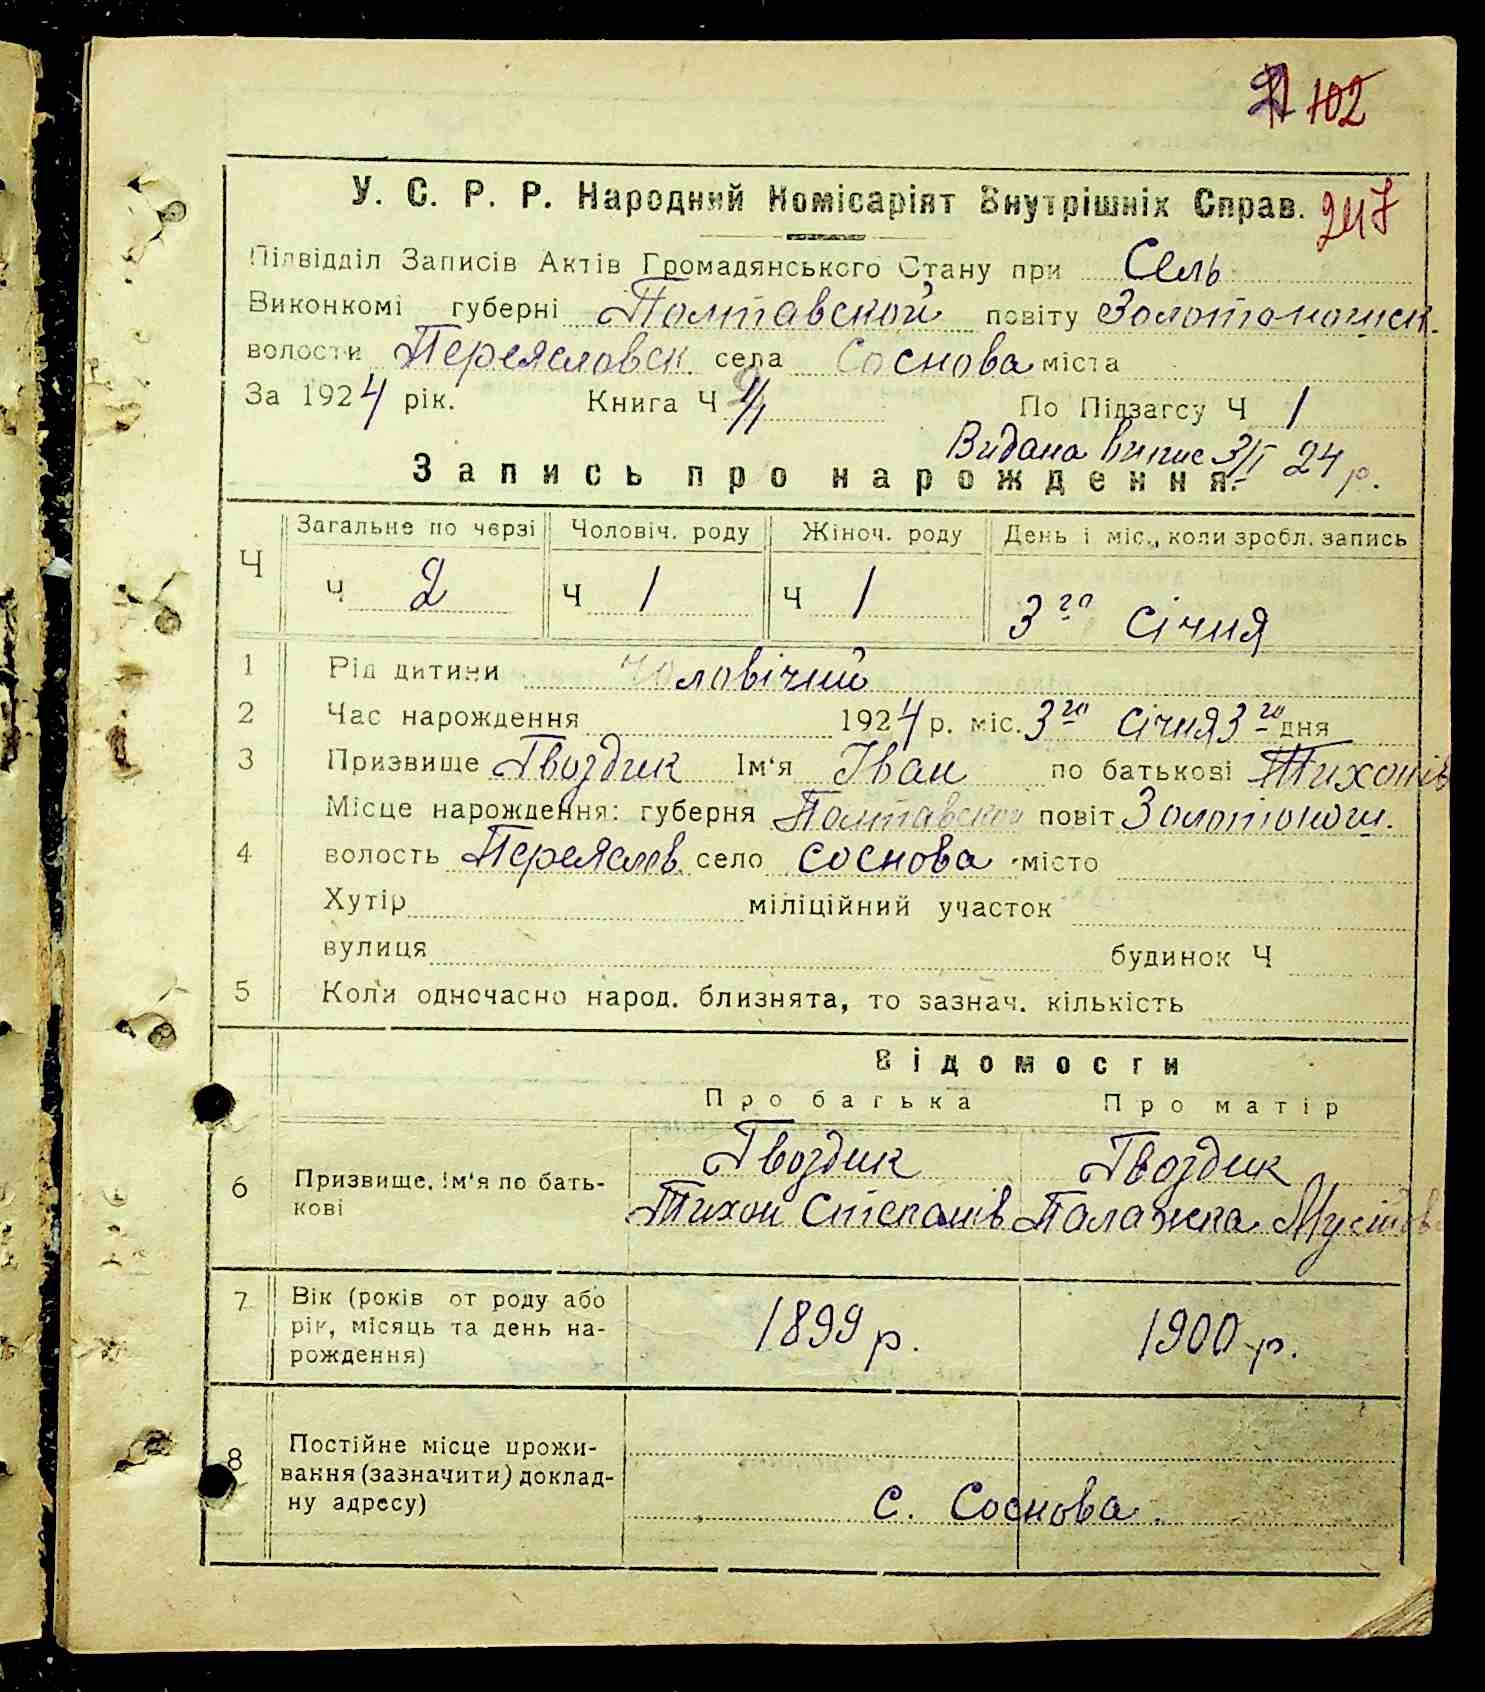 102
У. С. Р. Р. Народний Комісаріят Внутрішніх Справ. 247
Підвідділ Записів Актів Громадянського Стану при Сель
Виконкомі губерні Полтавской повіту Золотоношск.
волости Переясловск. села Соснова міста
За 1924 рік. Книга Ч По Підзагсу Ч 1
Видана випис 3/I 24 р.
Запись про нарождення.
Ч Загальне по черзі Чоловіч. роду Жіноч. роду День і міс., коли зробл. запись
Ч 2 Ч 1 Ч 1 3го січня
1 Рід дитини чоловічий
2 Час нарождення 1924 р. міс. 3го січня 3го дня
3 Призвище Гвоздик Ім'я Іван по батькові Тихонів
Місце нарождення: губерня Полтавской повіт Золотонош.
4 волость Переяслов. село соснова місто
Хутір міліційний участок
вулиця будинок Ч
5 Коли одночасно народ. близнята, то зазнач. кількість
Відомости
Про батька Про матір
Гвоздик Гвоздик
6 Призвище, ім'я по бать-
кові
Тихон Степанів Палажка Мусіїва
7 Вік (років от роду або
рік, місяць та день на-
рождення)
1899 р. 1900 р.
8 Постійне місце прожи-
вання (зазначити) доклад-
ну адресу)
с. Соснова.